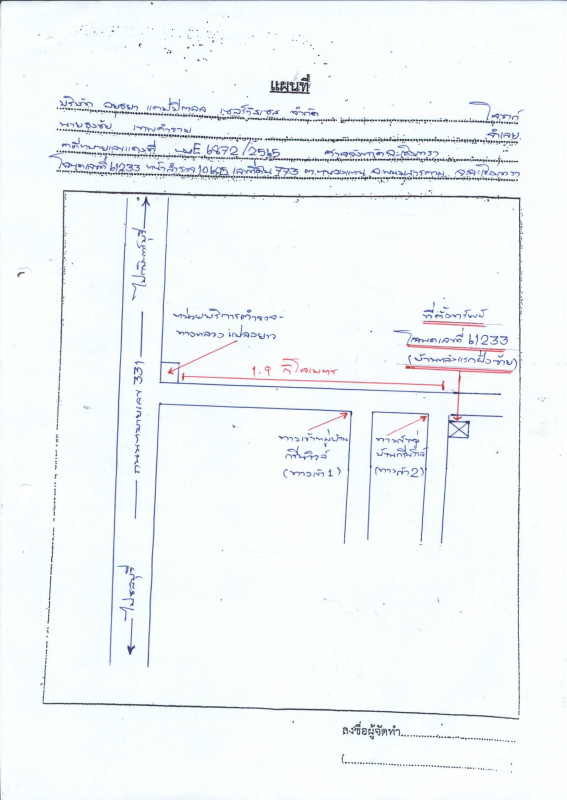 แผนที่
บริษัท อยุธยา แคปปิตอล เซอร์วิสเซส จำกัด โจทก์
นายธงชัย จำเลย
คดีหมายเลขแดงที่ ผบE 6972/2565 ศาลจังหวัดฉะเชิงเทรา
โฉนดเลขที่ 61233 หน้าสำรวจ 10695 เลขที่ดิน 773 จ.ฉะเชิงเทรา
ไปกบินทร์บุรี
หน่วยบริการตำรวจ
ทางหลวง แปลงยาว
ที่ตั้งทรัพย์
โฉนดเลขที่ 61233
(บ้านหลังแรกฝั่งซ้าย)
1.9 กิโลเมตร
ถนนทางหลวงหมายเลข 331
ทางเข้าหมู่บ้าน
กรีนวิลล์
(ทางเข้า 1)
ทางเข้าหมู่
บ้านกรีนวิลล์
(ทางเข้า 2)
ไปชลบุรี
ลงชื่อผู้จัดทำ
(